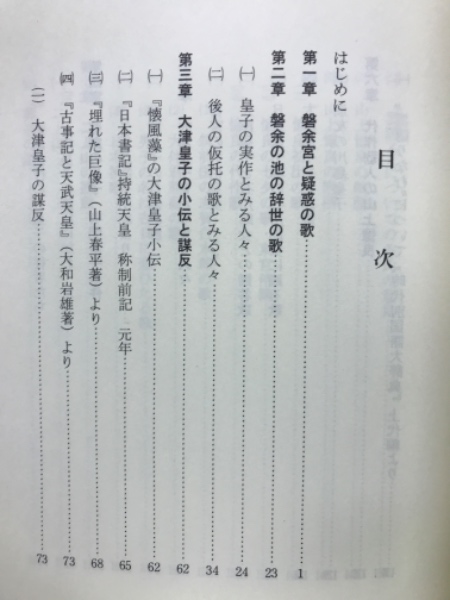 目次
はじめに
第一章 磐余宮と疑惑の歌……………1
第二章 磐余の池の辞世の歌……………23
㈠ 皇子の実作とみる人々……………24
㈡ 後人の仮托の歌とみる人々……………34
第三章 大津皇子の小伝と謀反……………62
㈠ 『懐風藻』の大津皇子小伝……………62
㈡ 『日本書記』持統天皇 称制前記 元年……………65
㈢ 『埋れた巨像』（山上春平著）より……………68
㈣ 『古事記と天武天皇』（大和岩雄著）より……………73
(一) 大津皇子の謀反……………73